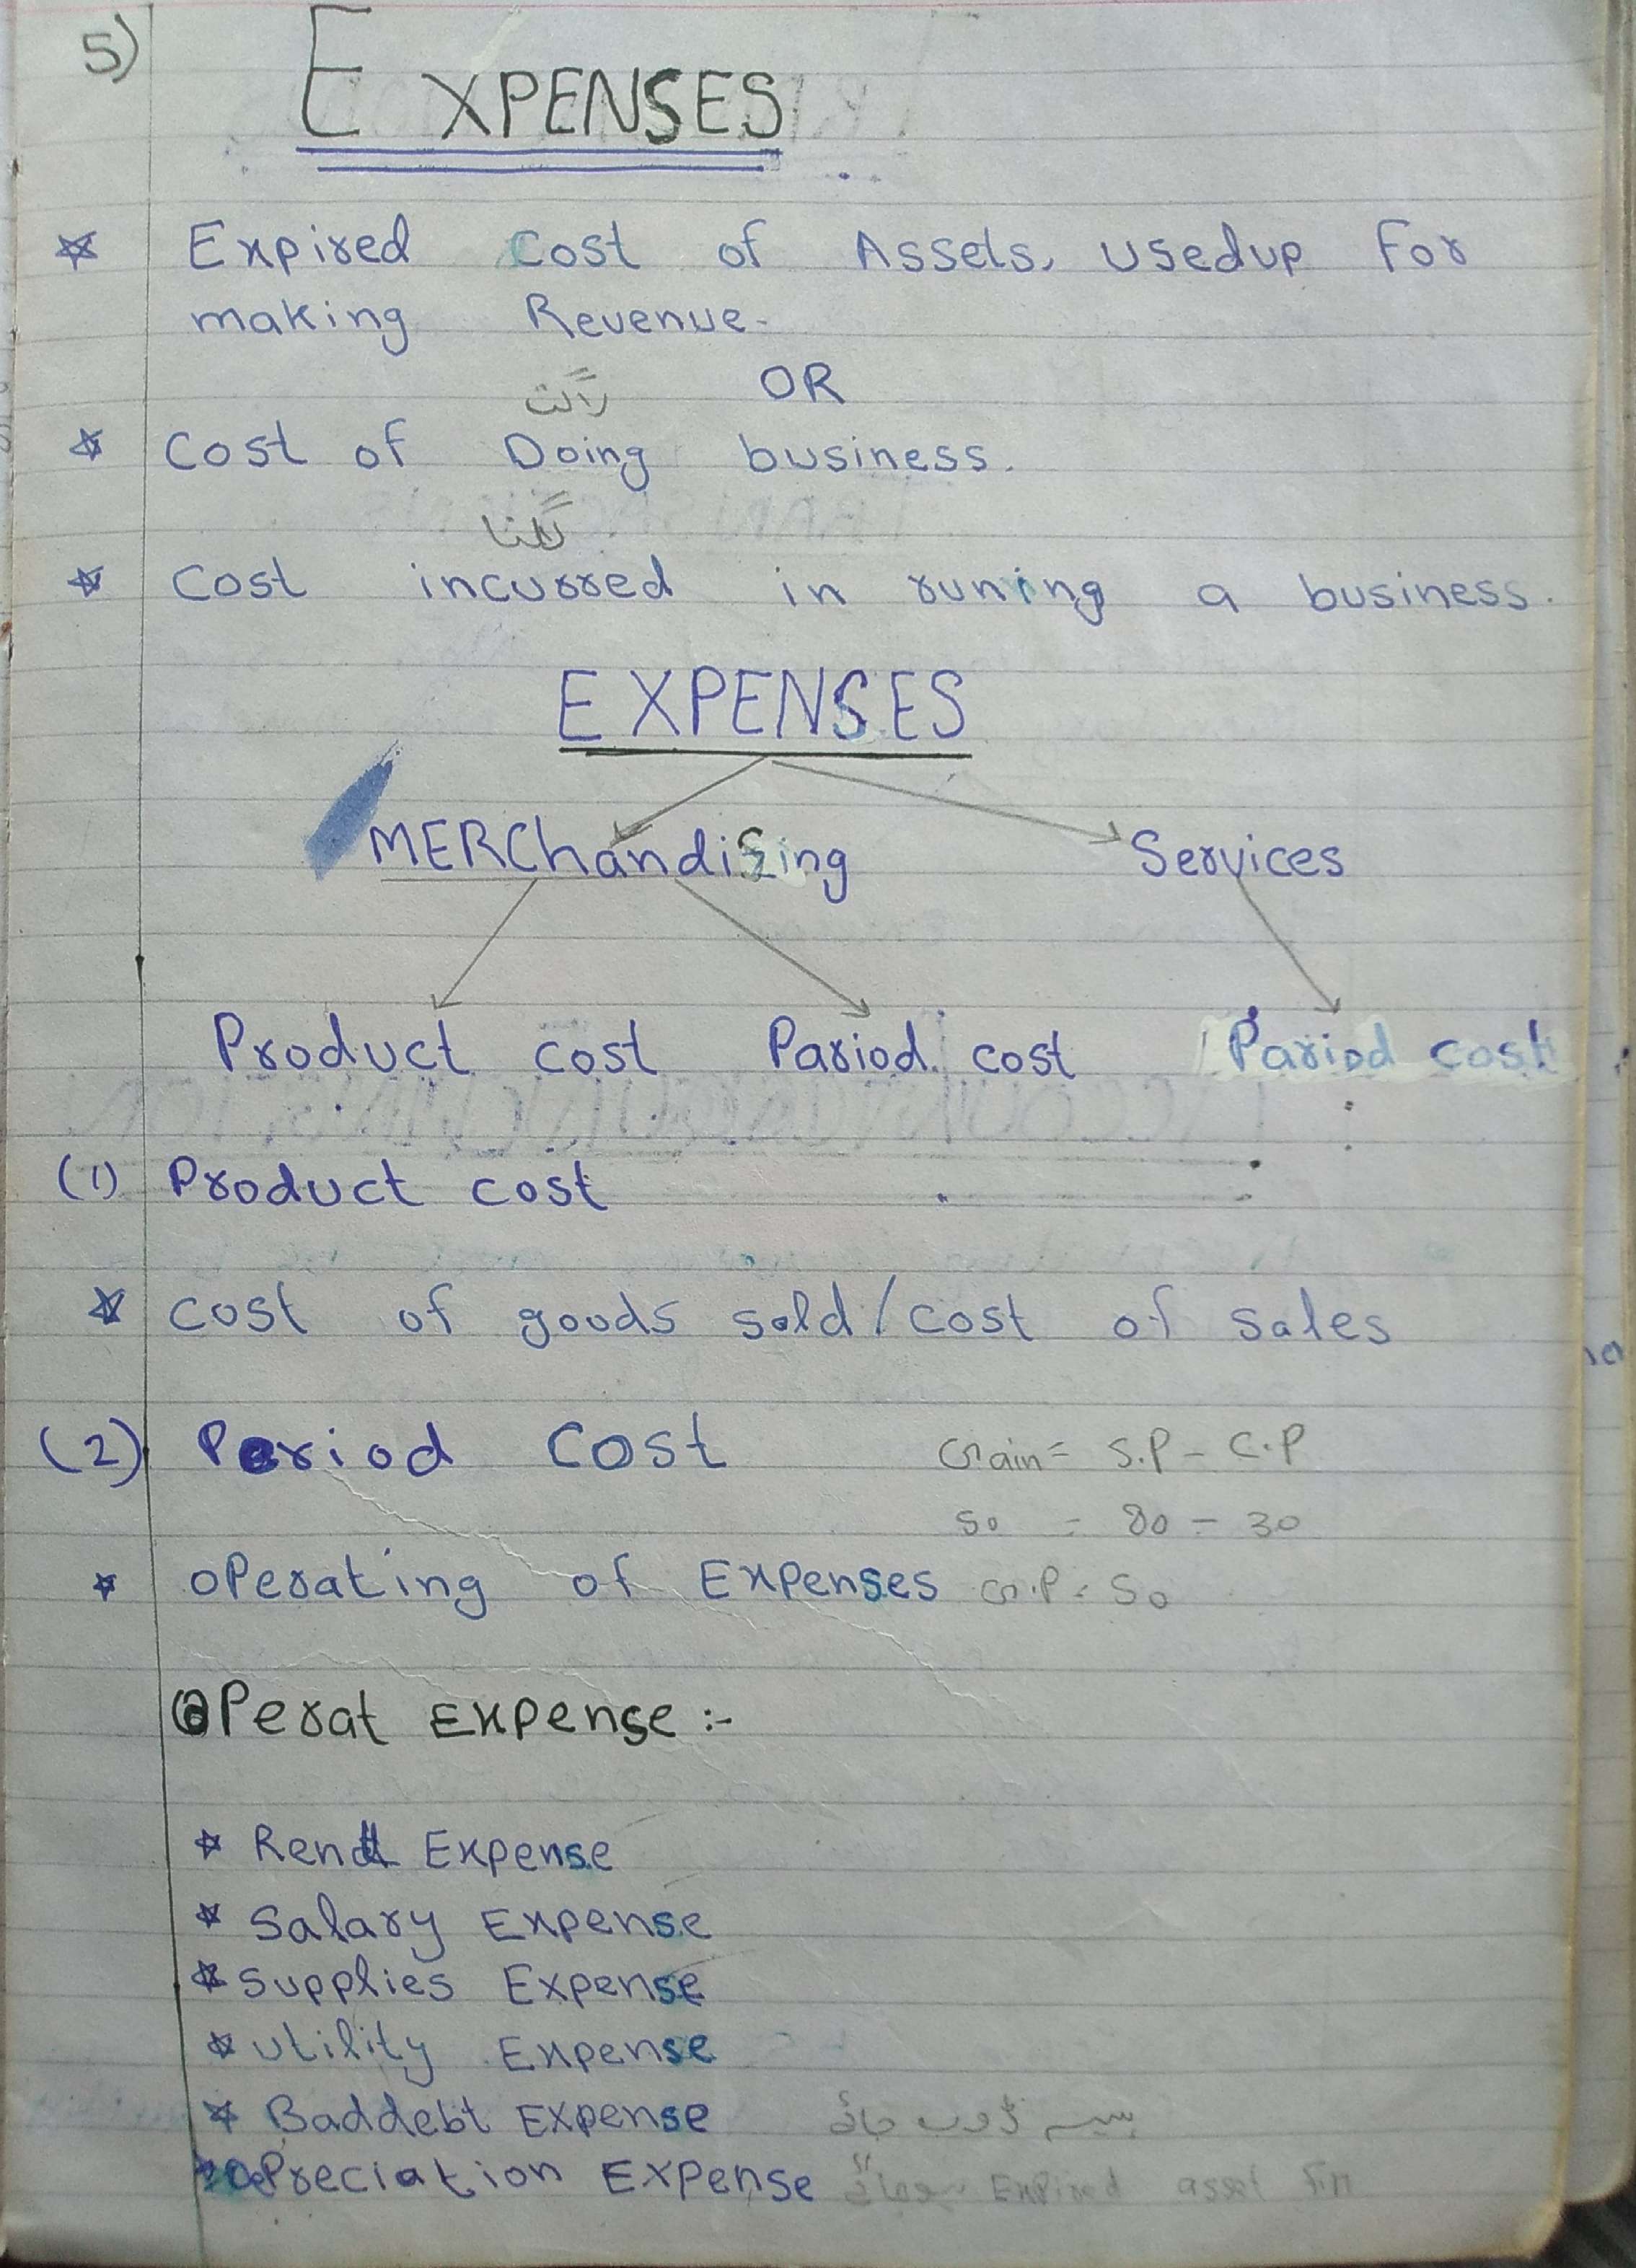 5)
EXPENSES
Expired Cost of Assets, usedup for
making Revenue.
OR
Cost of Doing business.
لگنا
Cost incurred in runing a business.
EXPENSES
MERChandising Services
Product cost Pariod cost Pariod cost
(1) Product cost
cost of goods sold/cost of sales
(2) Period Cost
Gain = S.P - C.P
50 = 80 - 30
operating of Expenses G.P = 50
OPerat Expense :-
Rent Expense
Salary Expense
Supplies Expense
Utility Expense
Baddebt Expense پیسے ڈوب جائے
DePreciation Expense Expired asset